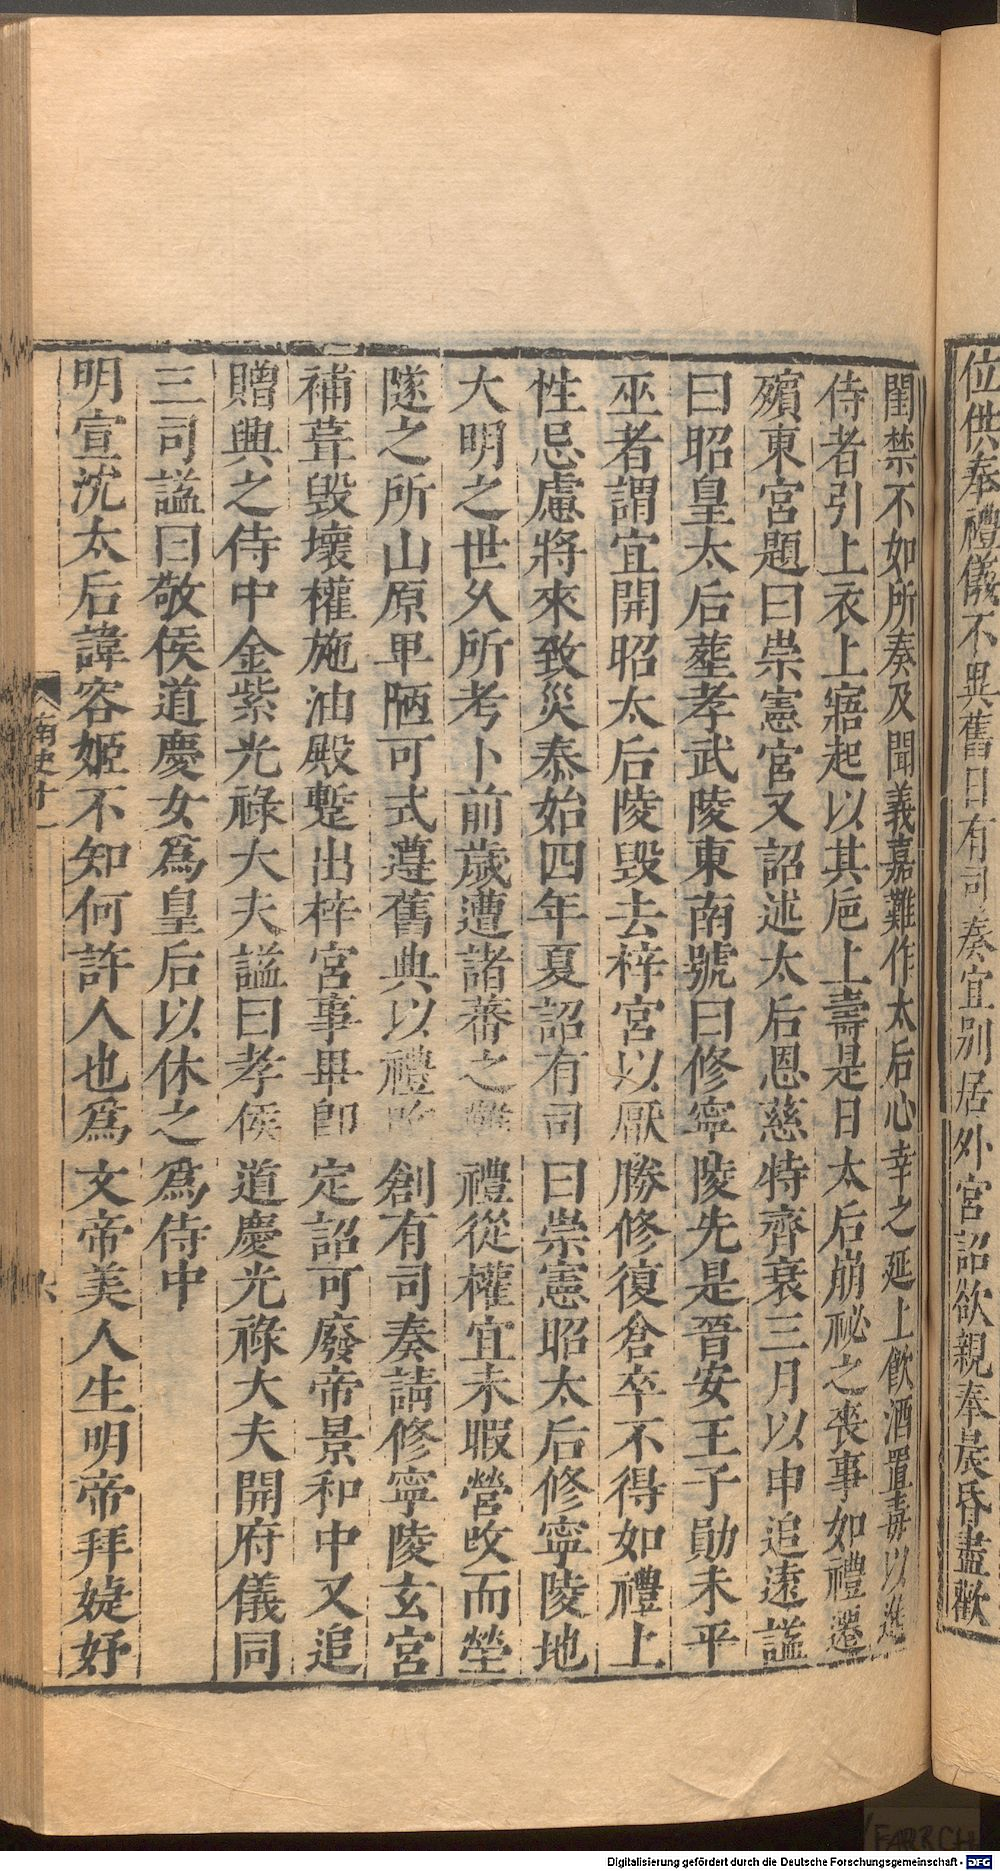 位供奉禮儀不異舊日有司奏宜别居外宮詔欲親奉晨昏盡歡
閨禁不如所奏及聞義嘉難作太后心幸之延上飲酒置毒以進
侍者引上衣上寤起以其巵上壽是日太后崩祕之喪事如禮遷
殯東宮題曰崇憲宮又詔述太后恩慈特齊衰三月以申追遠謚
曰昭皇太后葬孝武陵東南號曰修寧陵先是晉安王子勛未平
巫者謂宜開昭太后陵毁去梓宮以厭勝修復倉卒不得如禮上
性忌慮將來致災泰始四年夏詔有司曰崇憲昭太后修寧陵地
大明之世久所考卜前歲遭諸蕃之難禮從權宜未暇營改而塋
隧之所山原卑陋可式遵舊典以禮創有司奏請修寧陵玄宮
補葺毁壞權施油殿蹔出梓宮事畢卽定詔可廢帝景和中又追
贈興之侍中金紫光祿大夫謚曰孝侯道慶光祿大夫開府儀同
三司謚曰敬侯道慶女爲皇后以休之爲侍中
明宣沈太后諱容姬不知何許人也爲文帝美人生明帝拜婕妤
南史十一
Digitalisierung gefördert durch die Deutsche Forschungsgemeinschaft - DFG